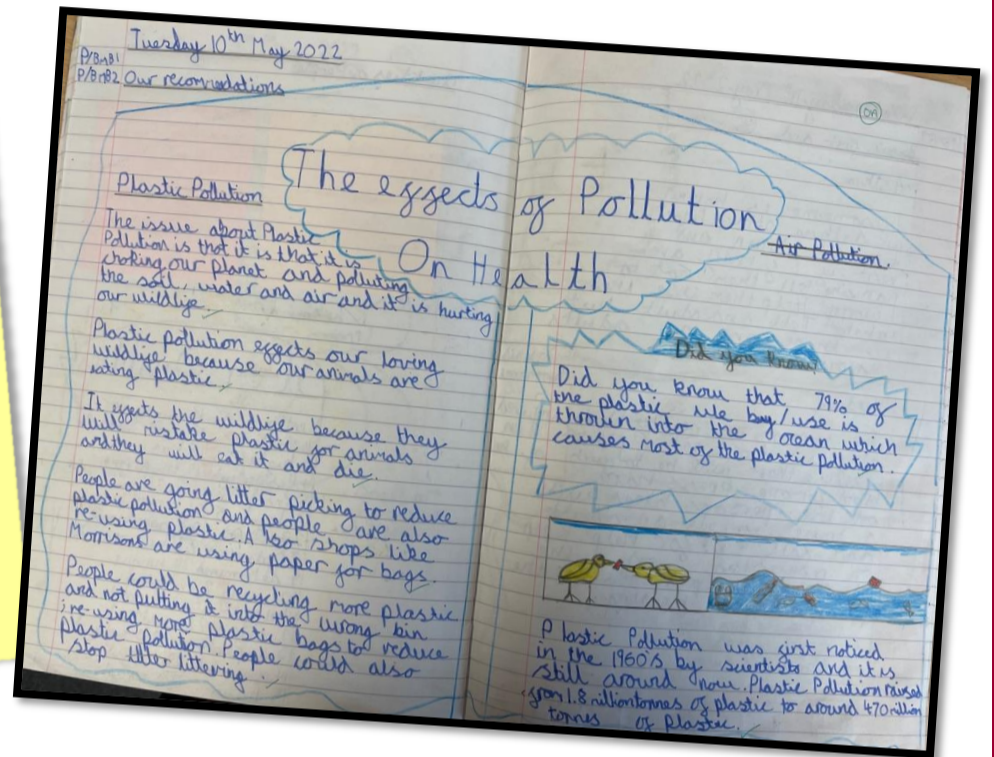 Tuesday 10th May 2022
P/BnB1
P/BnB2 Our recomodations
The effects of Pollution
On Health
Plastic Pollution
The issue about Plastic
Pollution is that it is that it is
choking our planet and polluting
the soil, water and air and it is hurting
our wildlife.
Plastic pollution effects our loving
wildlife because our animals are
eating plastic.
It effects the wildlife because they
will mistake plastic for animals
and they will eat it and die.
People are going litter picking to reduce
plastic pollution and people are also
re-using plastic. Also shops like
Morrisons are using paper for bags.
People could be recycling more plastic
and not putting it into the wrong bin
; re-using more plastic bags to reduce
plastic pollution. People could also
stop litter littering.
on
Air Pollution.
Did you know
Did you know that 79% of
the plastic we buy/use is
thrown into the ocean which
causes most of the plastic pollution.
Plastic Pollution was first noticed
in the 1960's by scientists and it is
still around now. Plastic Pollution raised
from 1.8 million tonnes of plastic to around 470 million
tonnes of plastic.